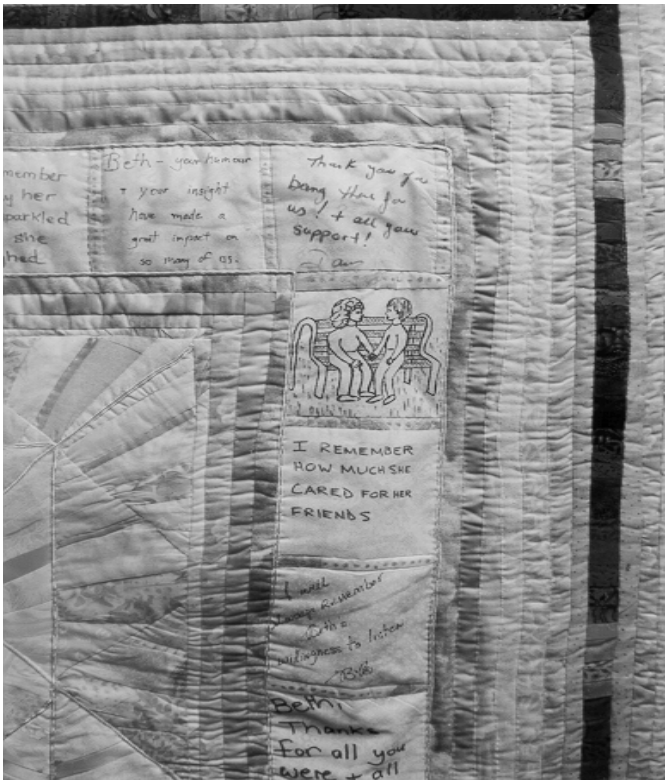 member
y her
parkled
she
hed
Beth - your humour
+ your insight
have made a
great impact on
so many of us.
Thank you for
being there for
us! + all your
support!
I REMEMBER
HOW MUCH SHE
CARED FOR HER
FRIENDS
I will
always Remember
Beth's
willingness to listen
Beth,
Thanks
for all you
were + all